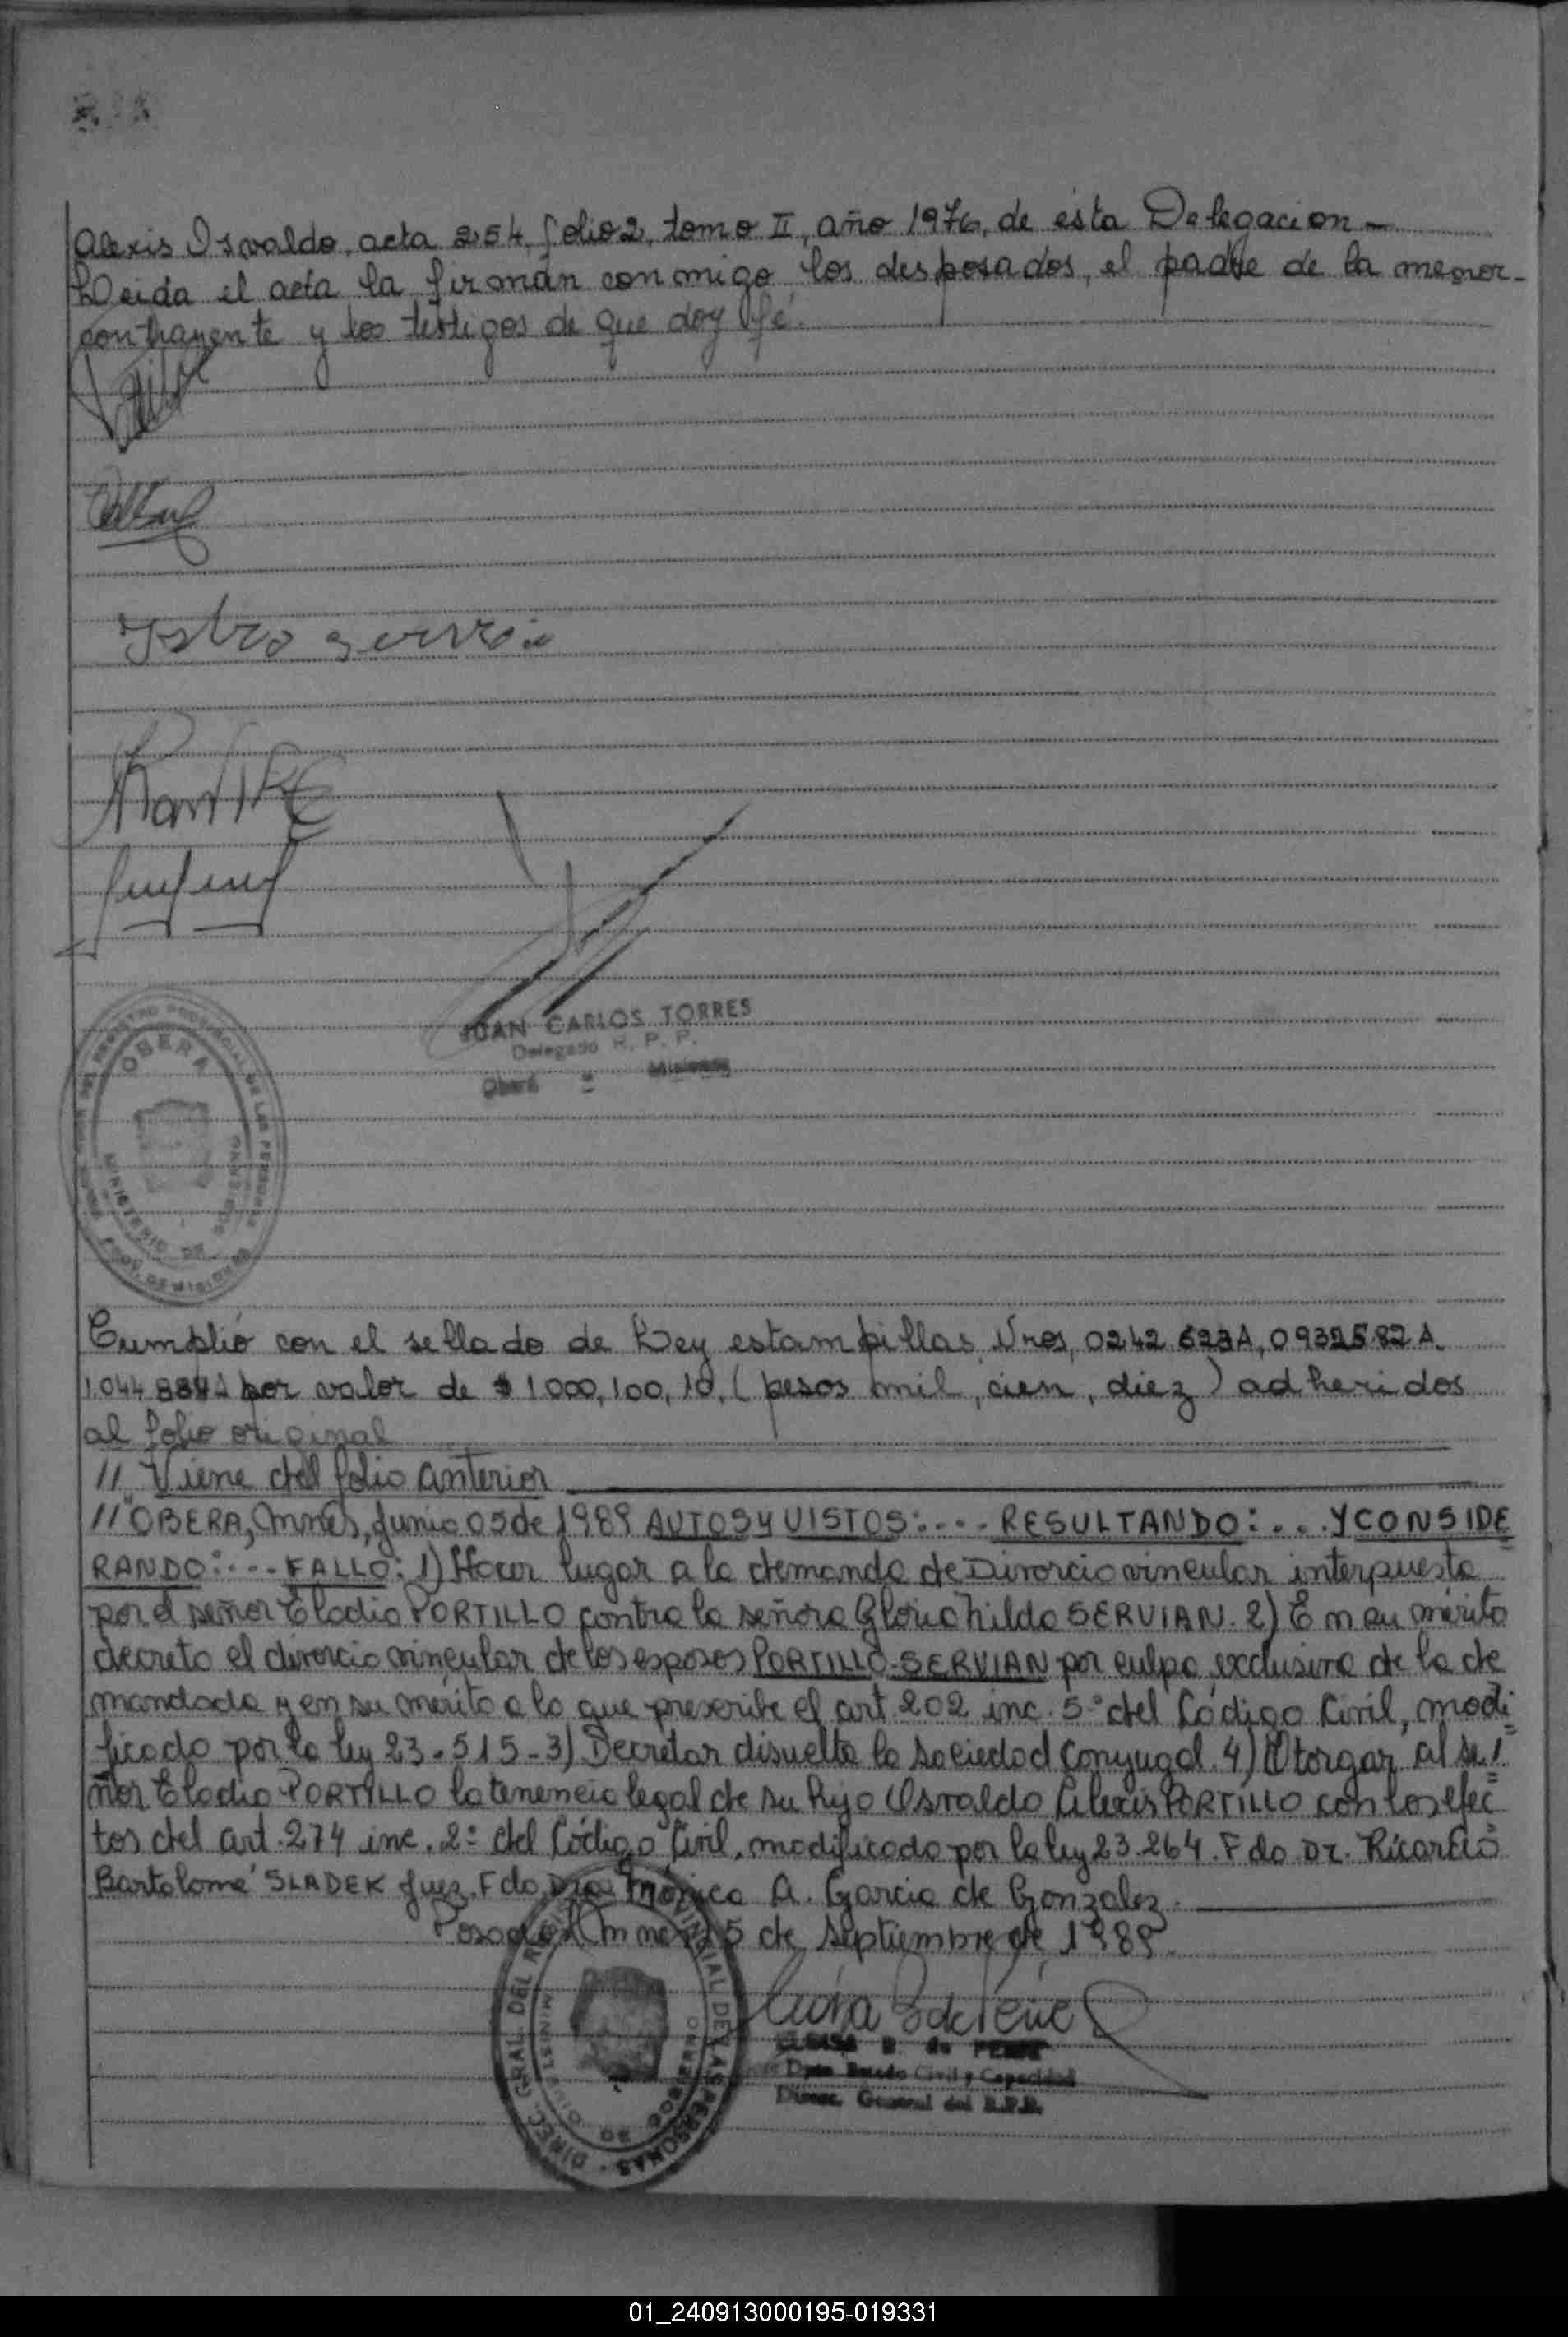 Alexis Osvaldo, acta 254, folio 2, tomo II, año 1976, de esta Delegacion -
Leida el acta la firman conmigo los desposados, el padre de la menor-
contrayente y los testigos de que doy fé.
JUAN CARLOS TORRES
Delegado R. P. P.
Oberá - Misiones
OBERA
MINISTERIO DE
PROV. DE MISIONES
Cumplió con el sellado de Ley estampillas, Nros, 0242 623A, 0932582 A.
1.044 884A por valor de $ 1000, 100, 10, ( pesos mil, cien, diez ) adheridos
al folio original
// Viene del folio anterior
//"OBERA, Mnes, Junio 05 de 1989 AUTOS y VISTOS:.... RESULTANDO: ... Y CONSIDE
RANDO:.... FALLO: 1) Hacer lugar a la demanda de Divorcio vincular interpuesta
por el señor Eladio PORTILLO contra la señora Gloria Nilda SERVIAN. 2) En su mérito
decreto el divorcio vincular de los esposos PORTILLO-SERVIAN por culpa exclusiva de la de
mandada y en su mérito a lo que prescribe el art. 202 inc. 5° del Código Civil, modi
ficado por la ley 23.515-3) Decretar disuelta la sociedad conyugal. 4) Otorgar al se
ñor Eladio PORTILLO la tenencia legal de su hijo Osvaldo Alexis PORTILLO con los efec
tos del art. 274 inc. 2° del Código Civil, modificado por la ley 23.264. Fdo Dr. Ricardo
Bartolomé SLADEK Juez. Fdo Dra Mónica A. Garcia de Gonzalez.
Posadas, Mnes 15 de Septiembre de 1989.
Dpto. Estado Civil y Capacidad
Direc. General del R.P.P.
01_240913000195-019331